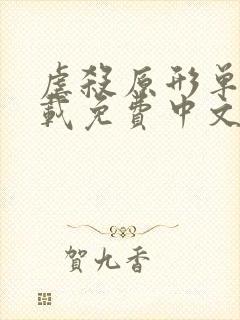 虐殺原形单
載免費中文
賀九香